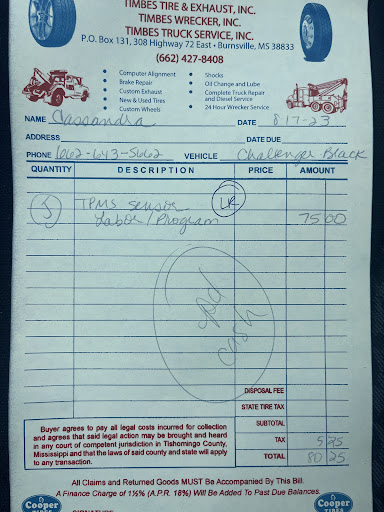 TIMBES TIRE & EXHAUST, INC.
TIMBES WRECKER, INC.
TIMBES TRUCK SERVICE, INC.
P.O. Box 131, 308 Highway 72 East • Burnsville, MS 38833
(662) 427-8408
• Computer Alignment
• Brake Repair
• Custom Exhaust
• New & Used Tires
• Custom Wheels
• Shocks
• Oil Change and Lube
• Complete Truck Repair and Diesel Service
• 24 Hour Wrecker Service
NAME Cassandra DATE 8-17-23
ADDRESS DATE DUE
PHONE 662-643-5662 VEHICLE Challenger Black
QUANTITY DESCRIPTION PRICE AMOUNT
TPMS Sensor LR
Labor/Program 75 00
pd
cash
DISPOSAL FEE
STATE TIRE TAX
SUBTOTAL
TAX 5 25
TOTAL 80 25
Buyer agrees to pay all legal costs incurred for collection
and agrees that said legal action may be brought and heard
in any court of competent jurisdiction in Tishomingo County,
Mississippi and that the laws of said county and state will apply
to any transaction.
All Claims and Returned Goods MUST Be Accompanied By This Bill.
A Finance Charge of 1½% (A.P.R. 18%) Will Be Added To Past Due Balances.
Cooper TIRES
Cooper TIRES
SIGNATURE